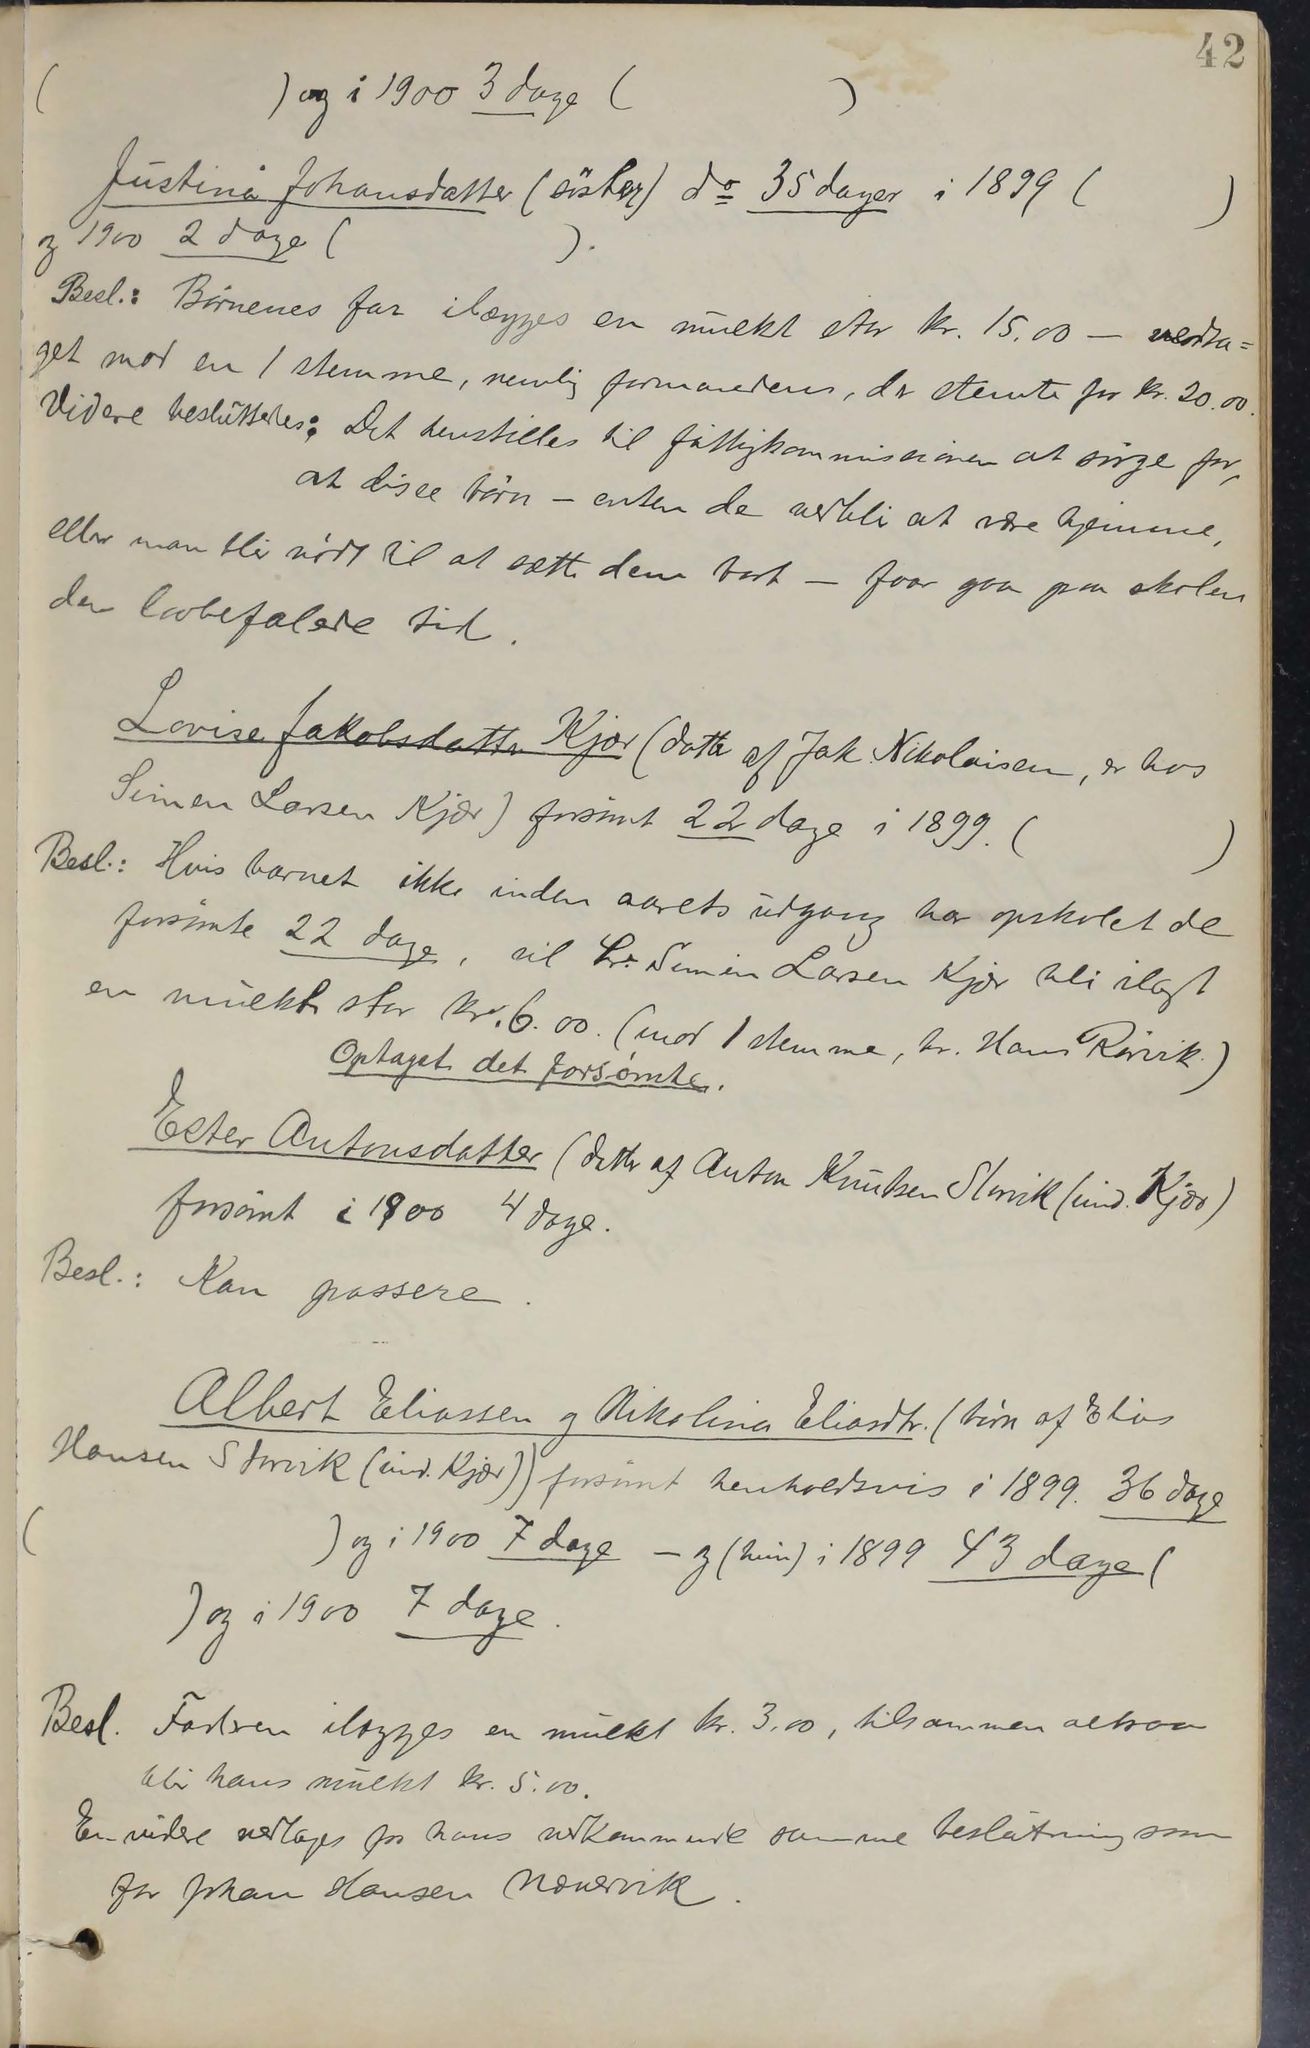 42
( ) og i 1900 3 dage ( )
Justina Johansdatter (söster) do 35 dager i 1899 ( )
og 1900 2 dage ( ).
Besl.: Börnenes far ilægges en mulkt stor kr. 15.00 — vedta=
get mod en 1 stemme, nemlig formandens, der stemte for kr. 20.00.
Videre besluttedes: Det henstilles til fattigkommissionen at sörge for,
at disse börn – enten de vedbli at være hjemme,
eller man blir nödt til at sætte dem bort – faar gaa paa skolen
den lovbefalede tid.
Lovise Jakobsdatter Kjær (datter af Jak. Nikolaisen, er hos
Simen Larsen Kjær) forsömt 22 dage i 1899. ( )
Besl.: Hvis barnet ikke inden aarets udgang har opskolet de
forsömte 22 dage, vil hr. Simen Larsen Kjær bli ilagt
en mulkt stor kr. 6.00. (mod 1 stemme, hr. Hans Rörvik.)
Optaget det forsømte.
Ester Antonsdatter (datter af Anton Knutsen Storvik (ind. Kjær)
forsömt i 1900 4 dage.
Besl.: Kan passere.
Albert Eliassen og Nikolina Eliasdtr. (börn af Elias
Hansen Storvik (ind. Kjær)) forsömt henholdsvis i 1899. 36 dage
( ) og i 1900 7 dage – og (hun) i 1899 43 dage (
) og i 1900 7 dage.
Besl. Faderen ilægges en mulkt kr. 3.00, tilsammen altsaa
blir hans mulkt kr. 5.00.
En videre vedtages for hans vedkommende samme beslutning som
for Johan Hansen Nævervik.